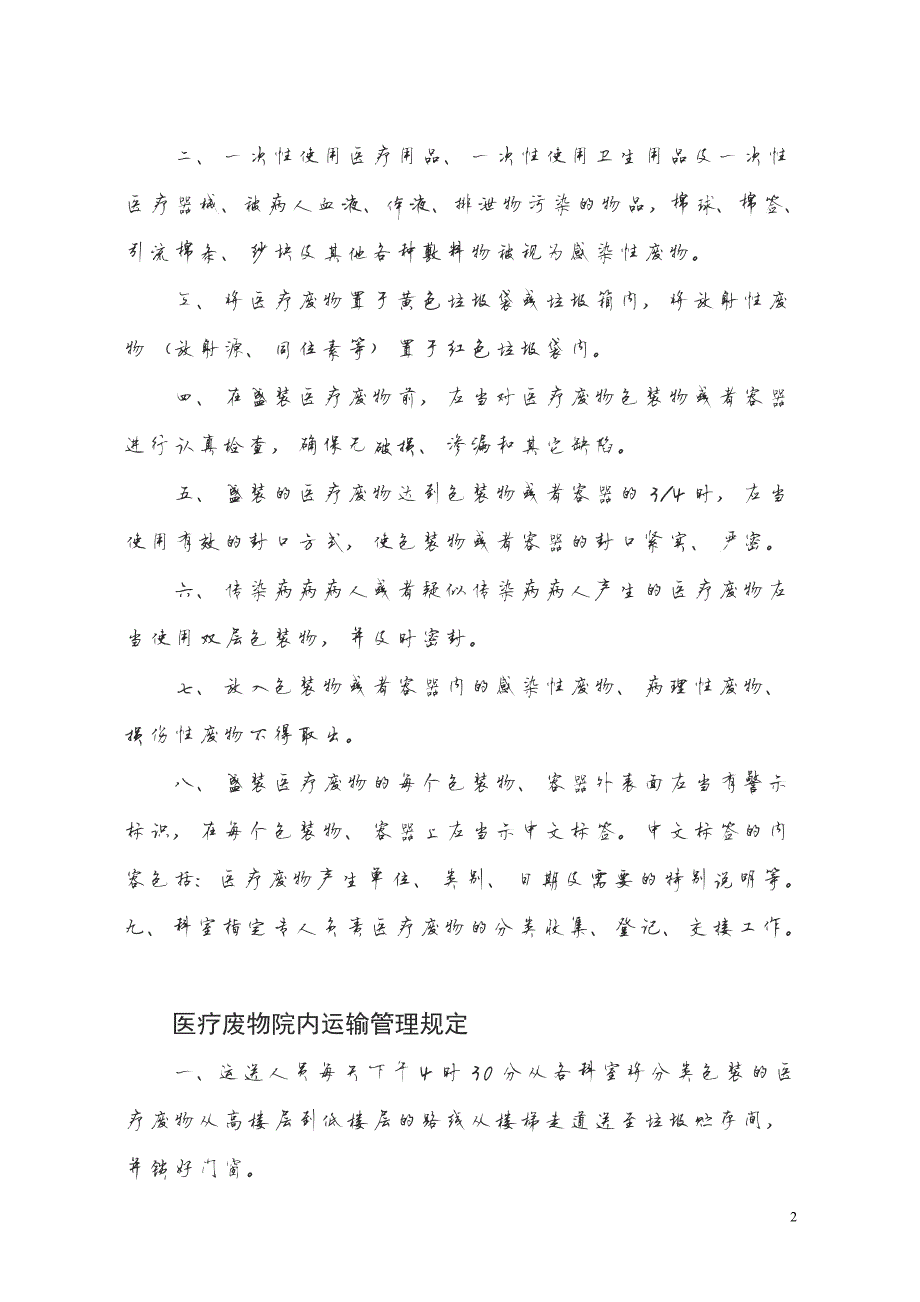 二、一次性使用医疗用品、一次性使用卫生用品及一次性
医疗器械、被病人血液、体液、排泄物污染的物品，棉球、棉签、
引流棉条、纱块及其他各种敷料物被视为感染性废物。
三、将医疗废物置于黄色垃圾袋或垃圾箱内，将放射性废
物（放射源、同位素等）置于红色垃圾袋内。
四、在盛装医疗废物前，应当对医疗废物包装物或者容器
进行认真检查，确保无破损、渗漏和其它缺陷。
五、盛装的医疗废物达到包装物或者容器的3/4时，应当
使用有效的封口方式，使包装物或者容器的封口紧实、严密。
六、传染病病病人或者疑似传染病病人产生的医疗废物应
当使用双层包装物，并及时密封。
七、放入包装物或者容器内的感染性废物、病理性废物、
损伤性废物不得取出。
八、盛装医疗废物的每个包装物、容器外表面应当有警示
标识，在每个包装物、容器上应当示中文标签。中文标签的内
容包括：医疗废物产生单位、类别、日期及需要的特别说明等。
九、科室指定专人负责医疗废物的分类收集、登记、交接工作。
医疗废物院内运输管理规定
一、运送人员每天下午4时30分从各科室将分类包装的医
疗废物从高楼层到低楼层的路线从楼梯走道送至垃圾贮存间，
并锁好门窗。
2